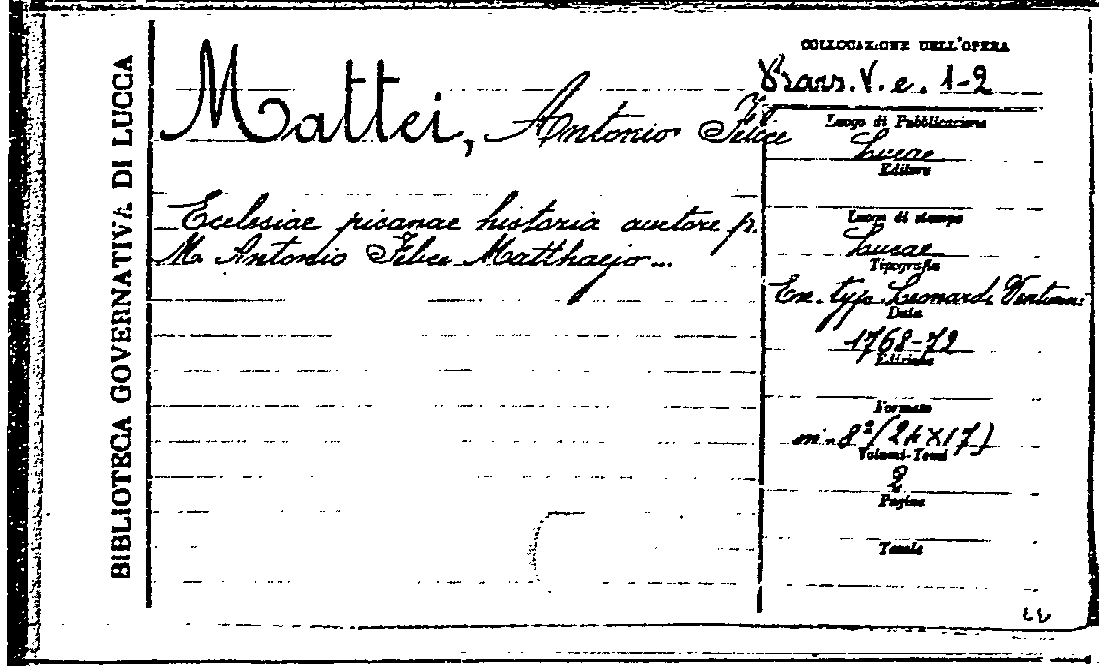 BIBLIOTECA GOVERNATIVA DI LUCCA
Mattei, Antonio Felice
Ecclesiae pisanae historia auctore p.
M. Antonio Felice Matthaejo...
COLLOCAZIONE DELL'OPERA
V. e. 1-2
Luogo di Pubblicazione
Lucae
Editore
Luogo di stampa
Lucae
Tipografia
Ex. typ. Leonardi Venturini
Data
1768-72
Edizione
Formato
in-8º (24X17)
Volumi-Tomi
2
Pagine
Tavole